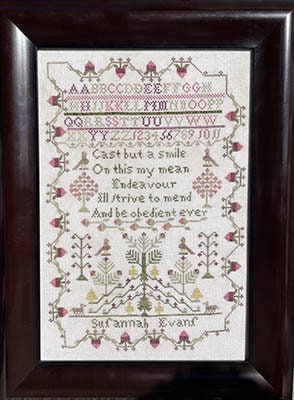 AABBCCDDEEFFGGH
HIJKKLLMMNNOOPP
QQRRSSTTUUVVWW
XXYYZZ1234567891011
Cast but a smile
On this my mean
Endeavour
Ill strive to mend
And be obedient ever
Susannah Evans